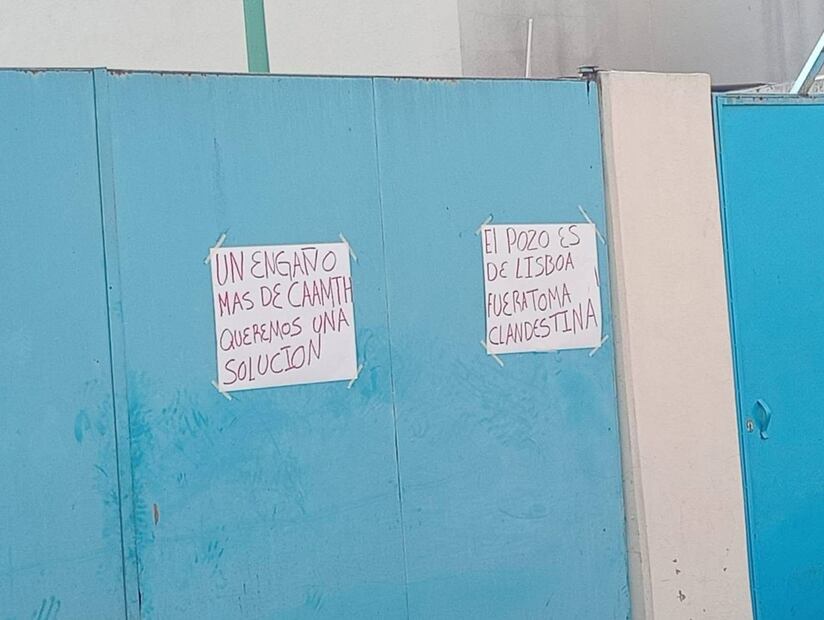 UN ENGAÑO
MAS DE CAAMTH
QUEREMOS UNA
SOLUCION
El POZO ES
DE LISBOA
FUERA TOMA
CLANDESTINA